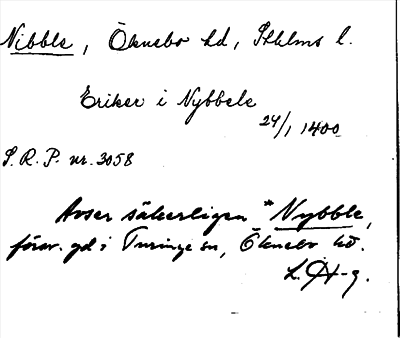 Nibble, Öknebo hd, Sthlms l.
Eriker i Nybbele
24/1 1400
S.R.P. nr. 3058
Avser säkerligen *Nybble,
försv. gd i Turinge sn, Öknebo hd.